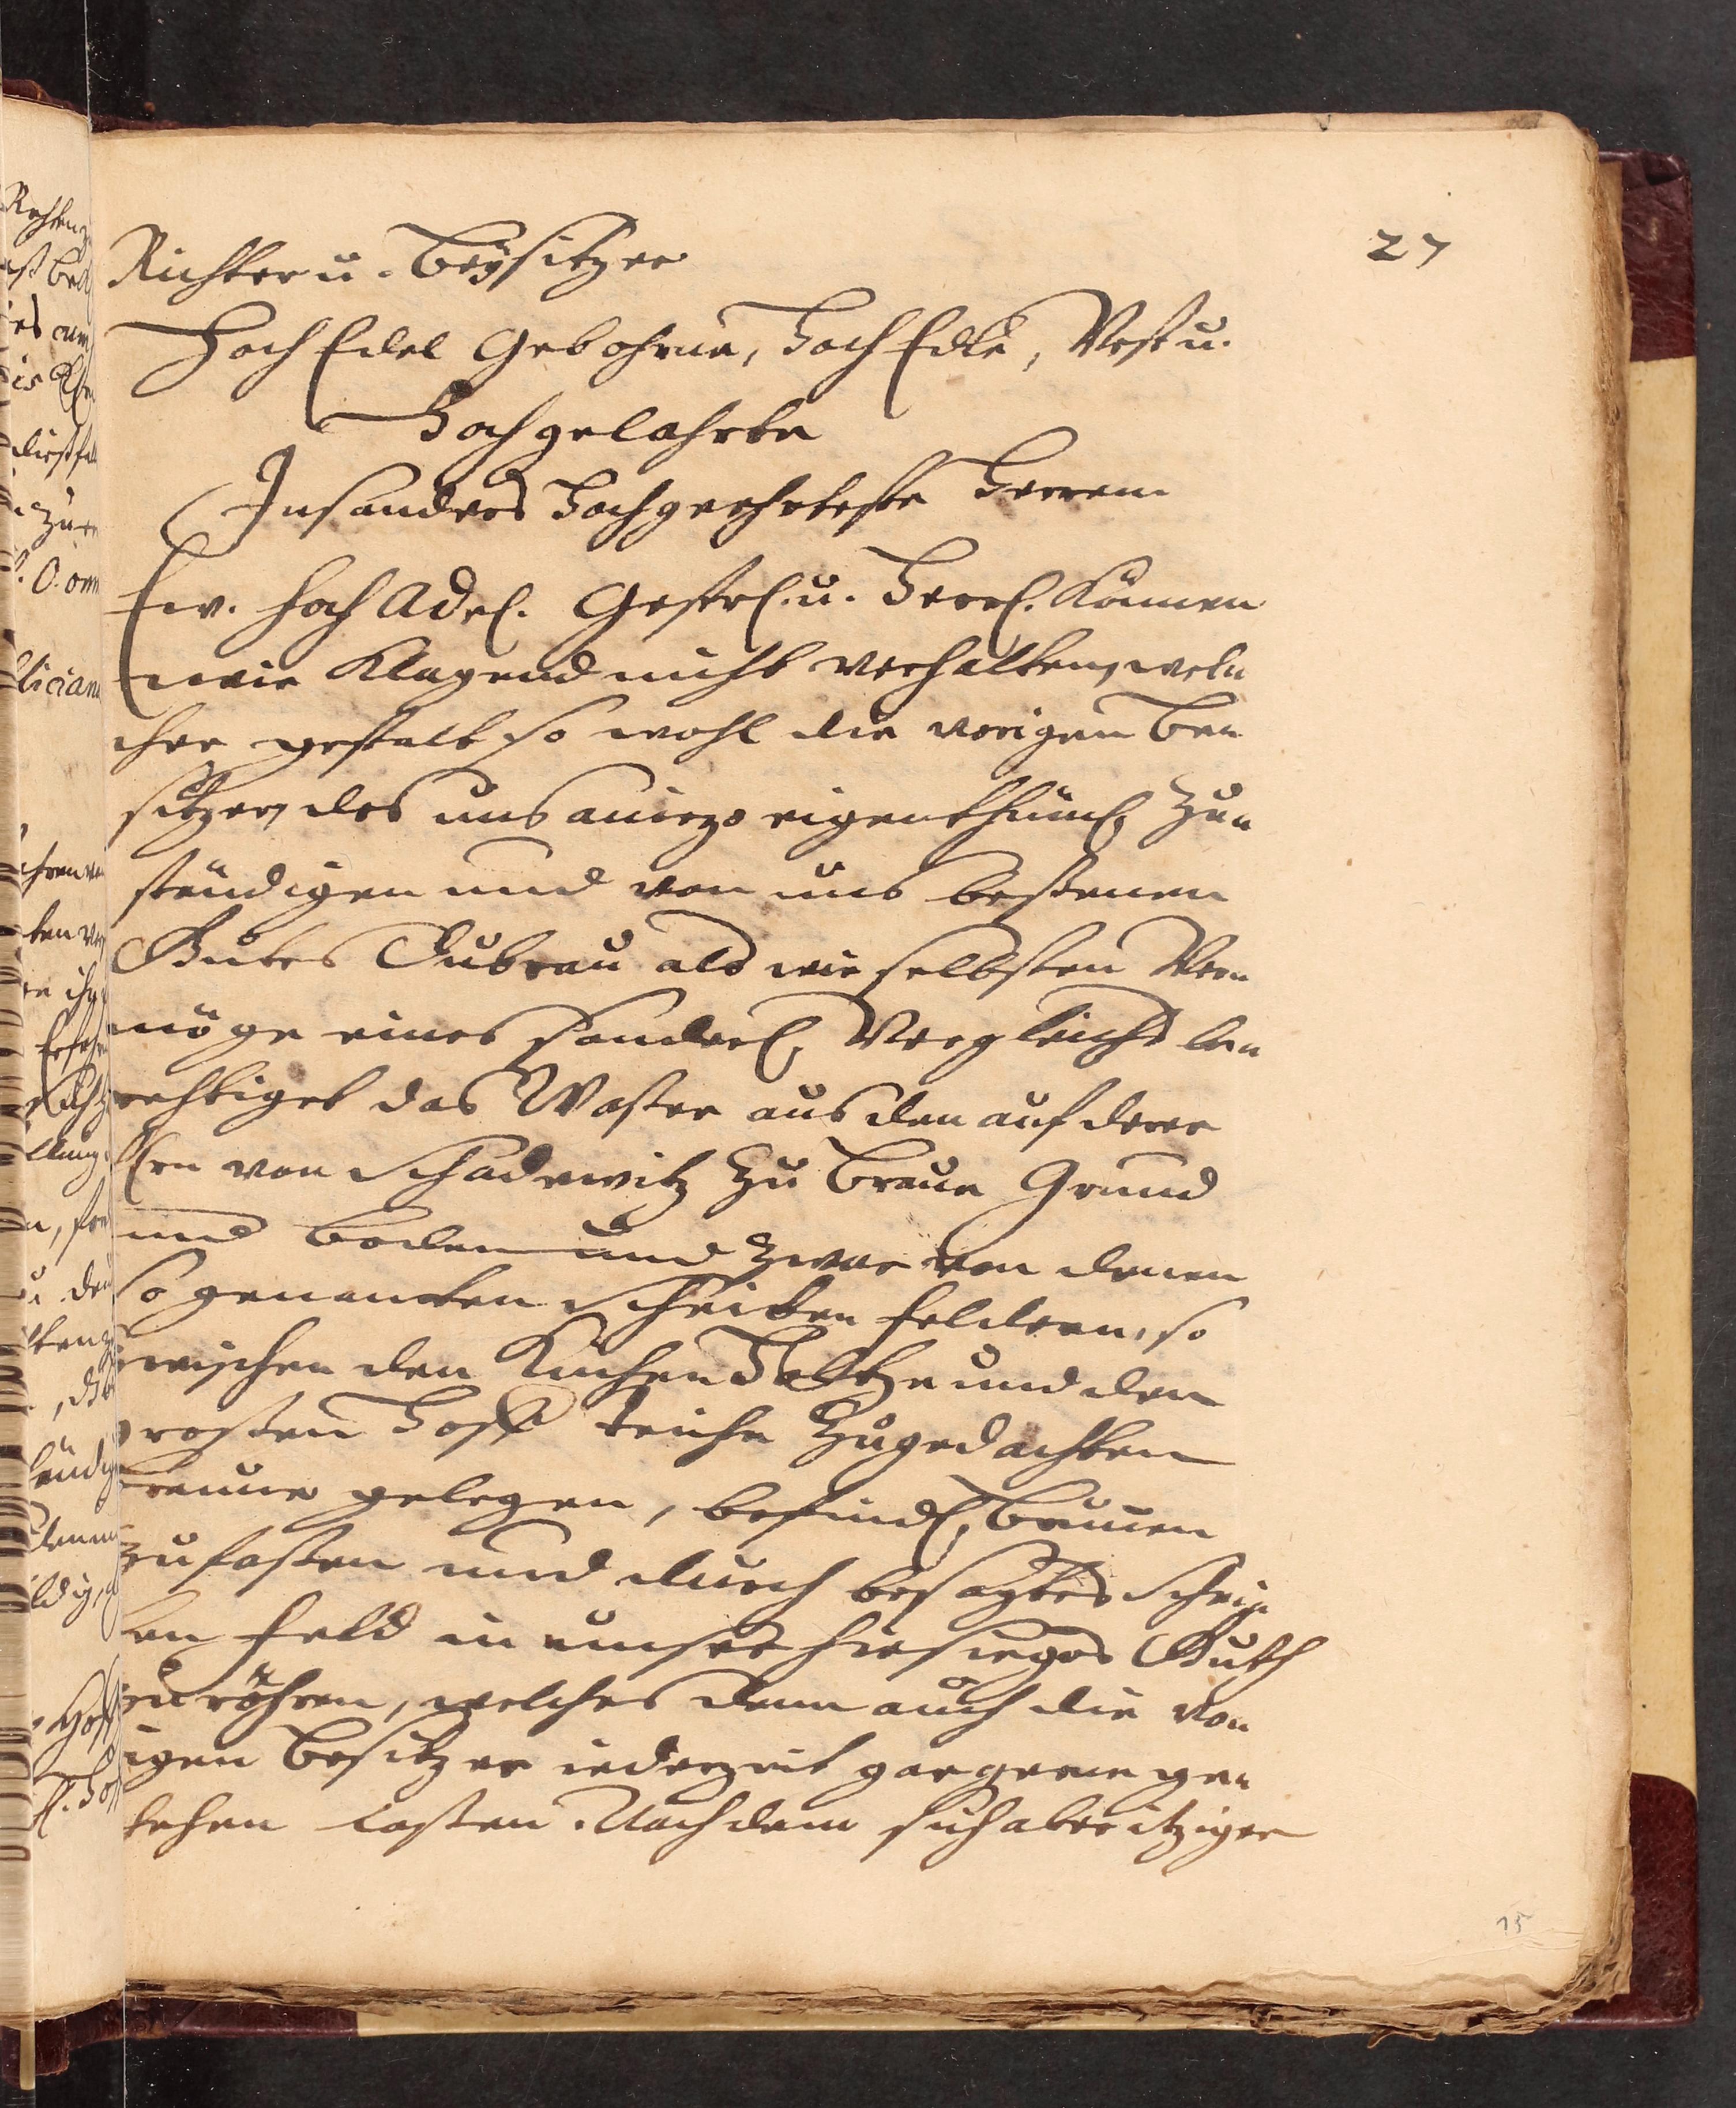 27
Richter u. Beÿsitzer
Hoch Edel Gebohrne, Hoch Edle, Vest u.
Hochgelahrte
Insonders Hochgeehrteste Herren
Ew. Hoch Adel. Gestr. u. Herrl. können
wir klagend nicht verhalten, wel-
cher gestalt so wohl die vorigen Be-
sitzer, des uns anietzo eigenthüml. zu-
ständigen und von uns beseßenen
Gutes Dubrau als wir selbsten Ver-
möge eines sonderl. Vergleichs be-
rechtiget das Waßer aus den auf derer
von Schadewitz zu Braune Grund
und Boden und zwar von denen
so genanten Scheiben feldern, so
zwischen den Küchen Holtze und den
großen Hoff teiche zu gedachten
Braune gelegen, befindl. Brunnen
zu faßen und durch besagtes Schei-
ben feld in unser hiesieges Guth
zu röhren, welches denn auch die vo-
rigen Besitzer iederzeit gar gerne ge-
schehen laßen. Nachdem sich aber itziger
15